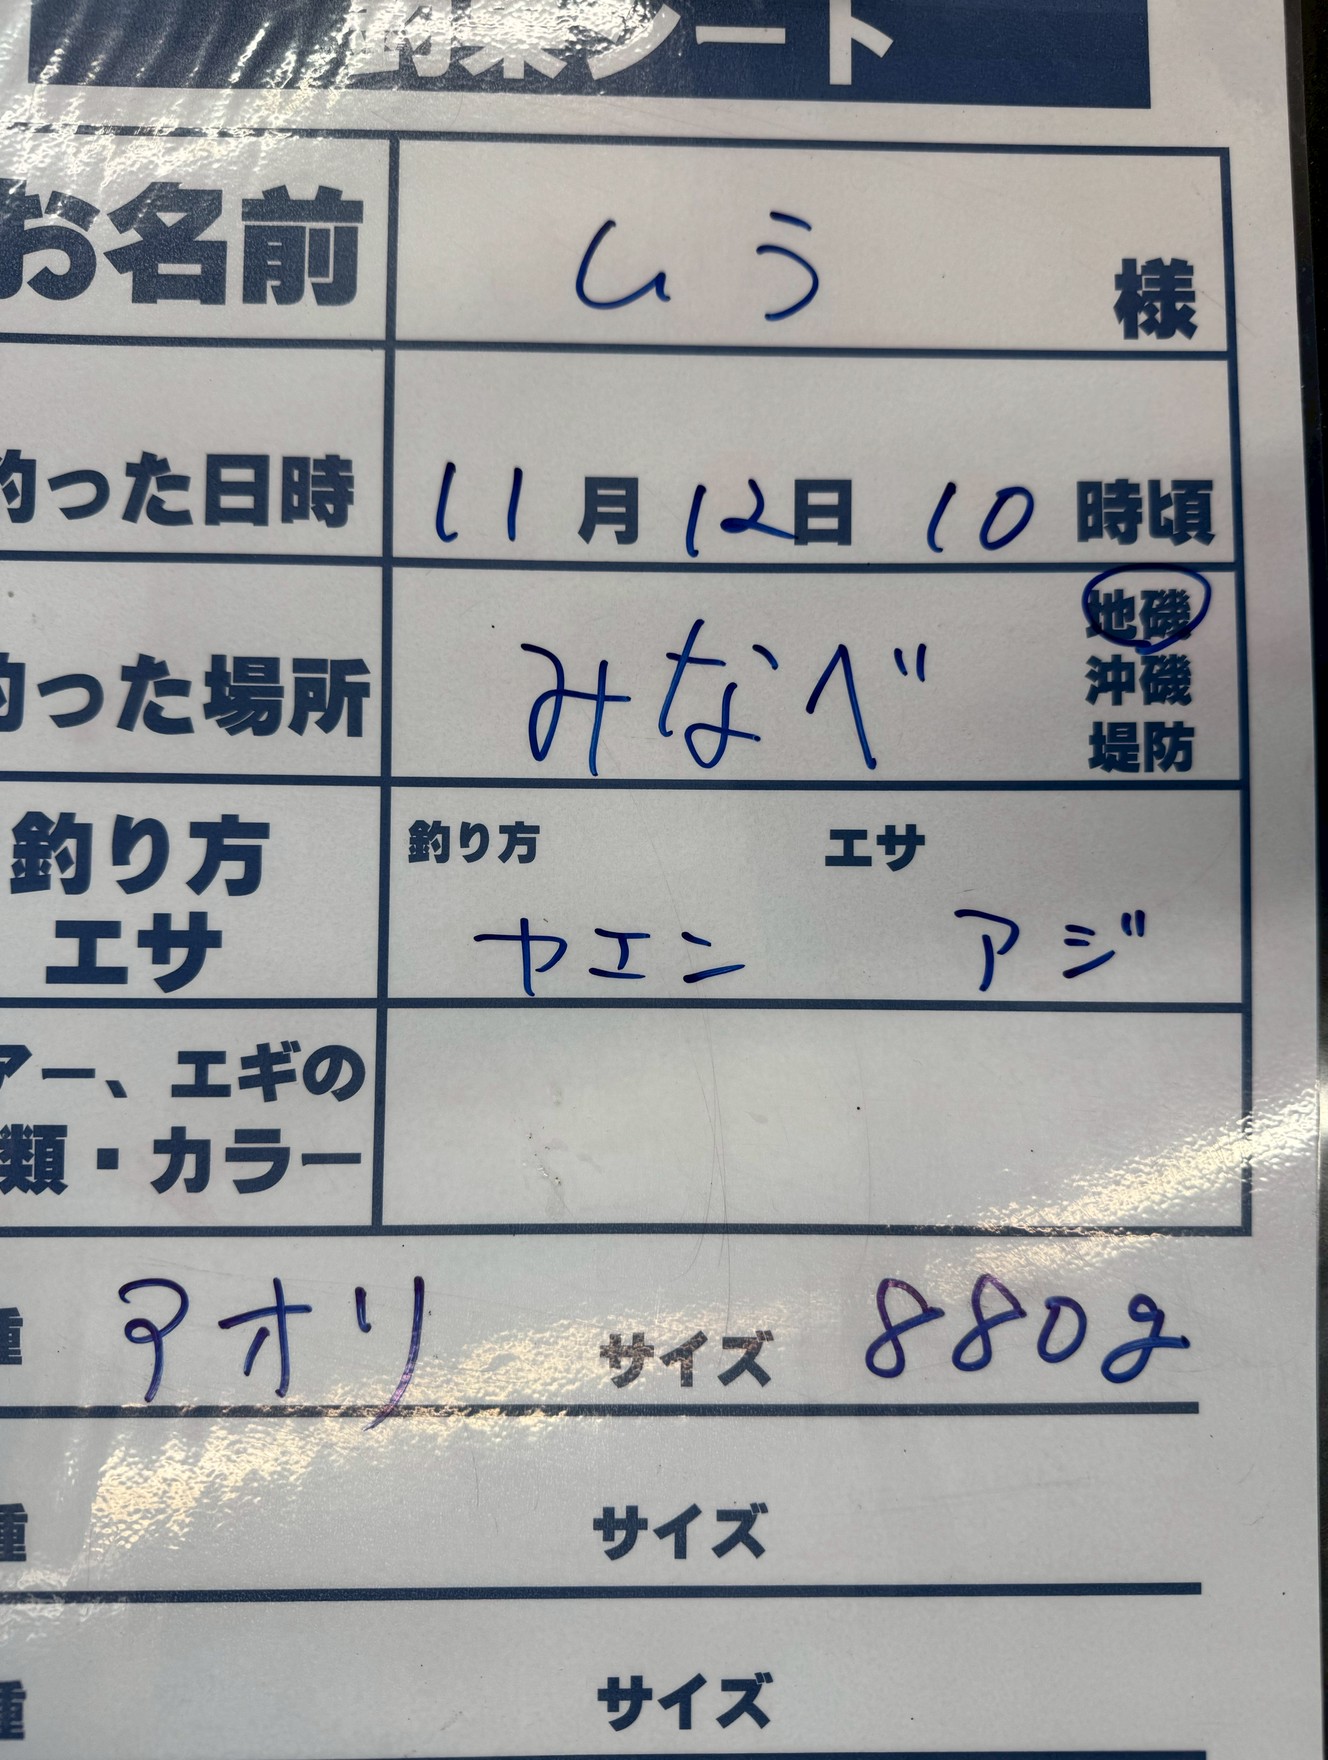 釣果シート
お名前 しう 様
釣った日時 11月12日 10時頃
釣った場所 みなべ 地磯
沖磯
堤防
釣り方 エサ
釣り方 ヤエン
エサ アジ
アー、エギの
類・カラー
種 アオリ サイズ 880g
種 サイズ
種 サイズ